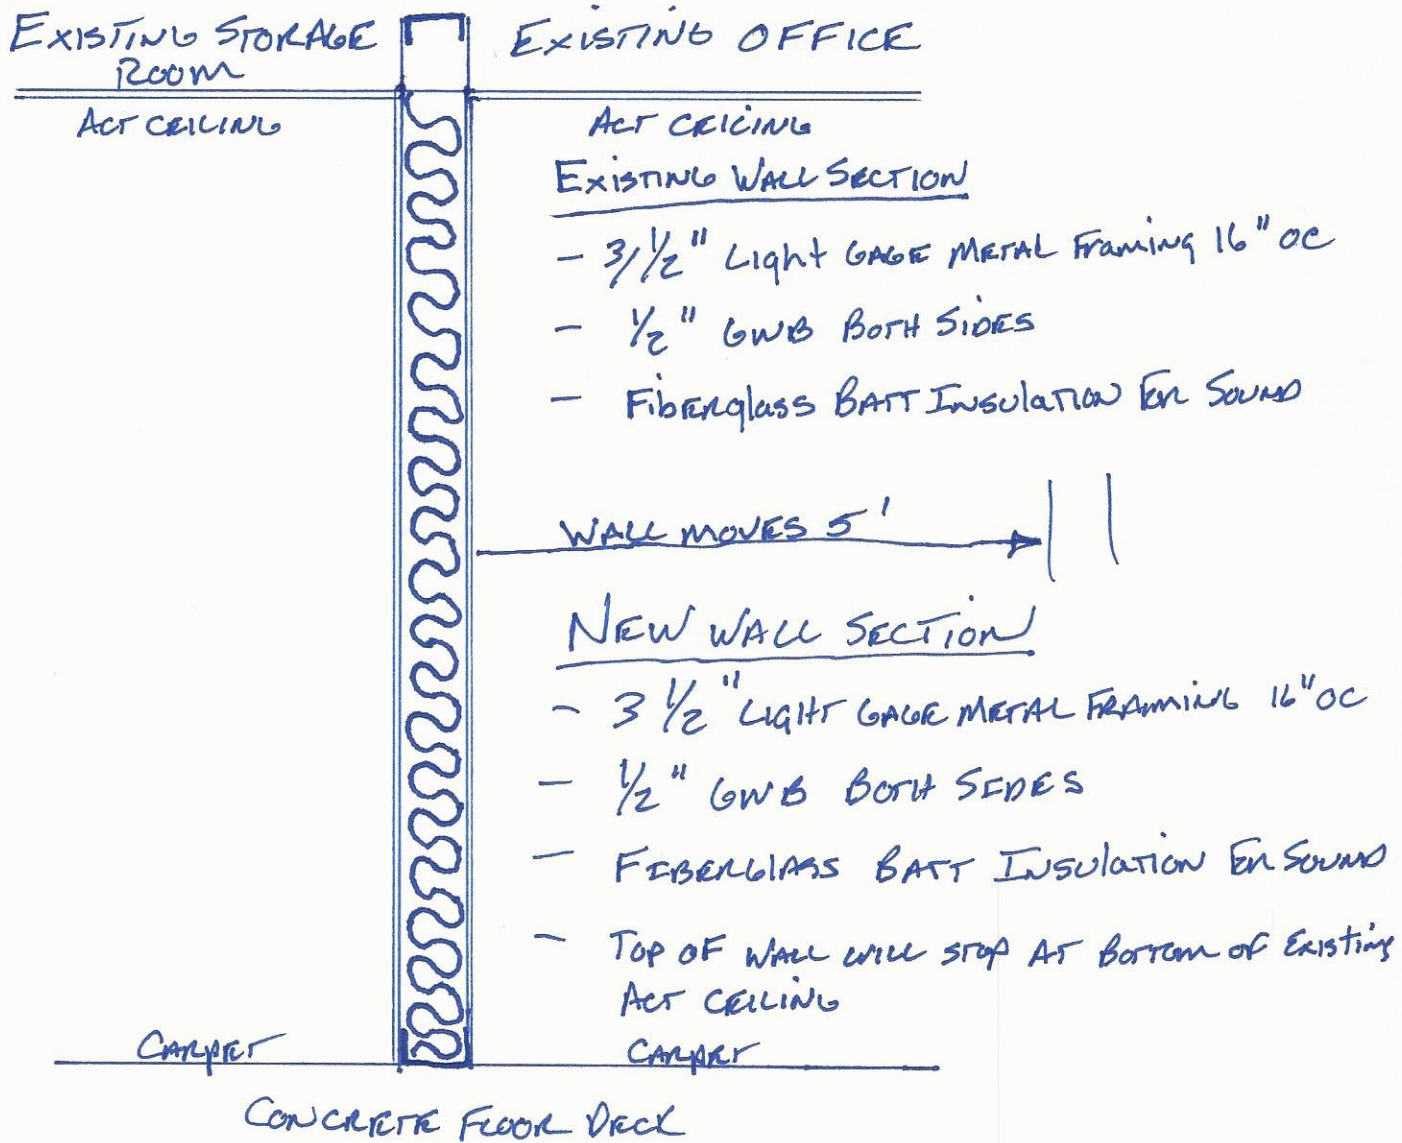 EXISTING STORAGE
ROOM
EXISTING OFFICE
ACT CEILING
ACT CEILING
EXISTING WALL SECTION
- 3/1/2" Light GAGE METAL Framing 16" OC
- 1/2" GWB BOTH SIDES
- FibERglass BATT INSulaTION FOR SOUND
WALL MOVES 5'
NEW WALL SECTION
- 3 1/2" LIGHT GAGE METAL FRAMING 16" OC
- 1/2" GWB BOTH SIDES
- FIBERGLASS BATT INSulATION FOR SOUND
- TOP OF WALL WILL STOP AT BOTTOM OF Existing
ACT CEILING
CARPET
CARPET
CONCRETE FLOOR DECK